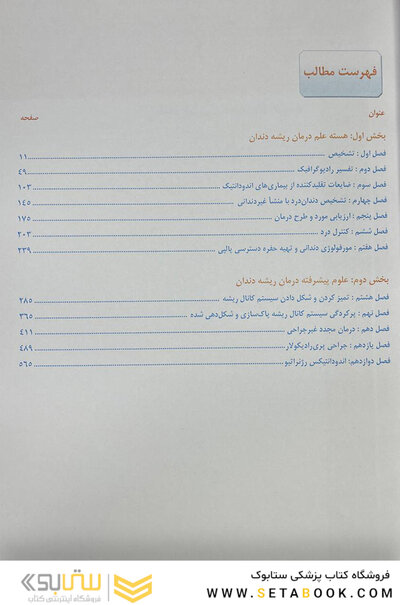 فهرست مطالب
عنوان صفحه
بخش اول: هسته علم درمان ریشه دندان
فصل اول : تشخیص ........ ۱۱
فصل دوم : تفسیر رادیوگرافیک ........ ۴۹
فصل سوم : ضایعات تقلیدکننده از بیماری‌های اندودانتیک ........ ۱۰۳
فصل چهارم : تشخیص دندان‌درد با منشأ غیردندانی ........ ۱۴۵
فصل پنجم : ارزیابی مورد و طرح درمان ........ ۱۷۵
فصل ششم : کنترل درد ........ ۲۰۳
فصل هفتم : مورفولوژی دندانی و تهیه حفره دسترسی پالپی ........ ۲۳۹
بخش دوم: علوم پیشرفته درمان ریشه دندان
فصل هشتم : تمیز کردن و شکل دادن سیستم کانال ریشه ........ ۲۸۵
فصل نهم : پرکردگی سیستم کانال ریشه پاک‌سازی و شکل‌دهی شده ........ ۳۶۵
فصل دهم : درمان مجدد غیرجراحی ........ ۴۱۱
فصل یازدهم : جراحی پری‌رادیکولار ........ ۴۸۹
فصل دوازدهم: اندودانتیکس رژنراتیو ........ ۵۶۵
فروشگاه کتاب پزشکی ستابوک
WWW.SETABOOK.COM
ستابوک
فروشگاه اینترنتی کتاب